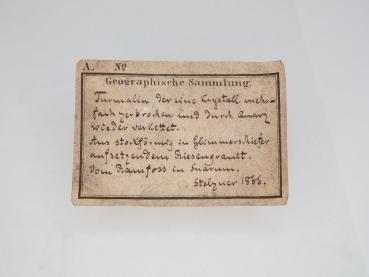 A. Nº
Geographische Sammlung.
Turmalin, der eine Krystall mehr-
fach zerbrochen und durch Quarz
wieder verkettet.
Aus stockförmig in Glimmerschiefer
aufsetzendem Riesengranit.
Vom Ramfoss in Snarum.
Stelzner 1866.